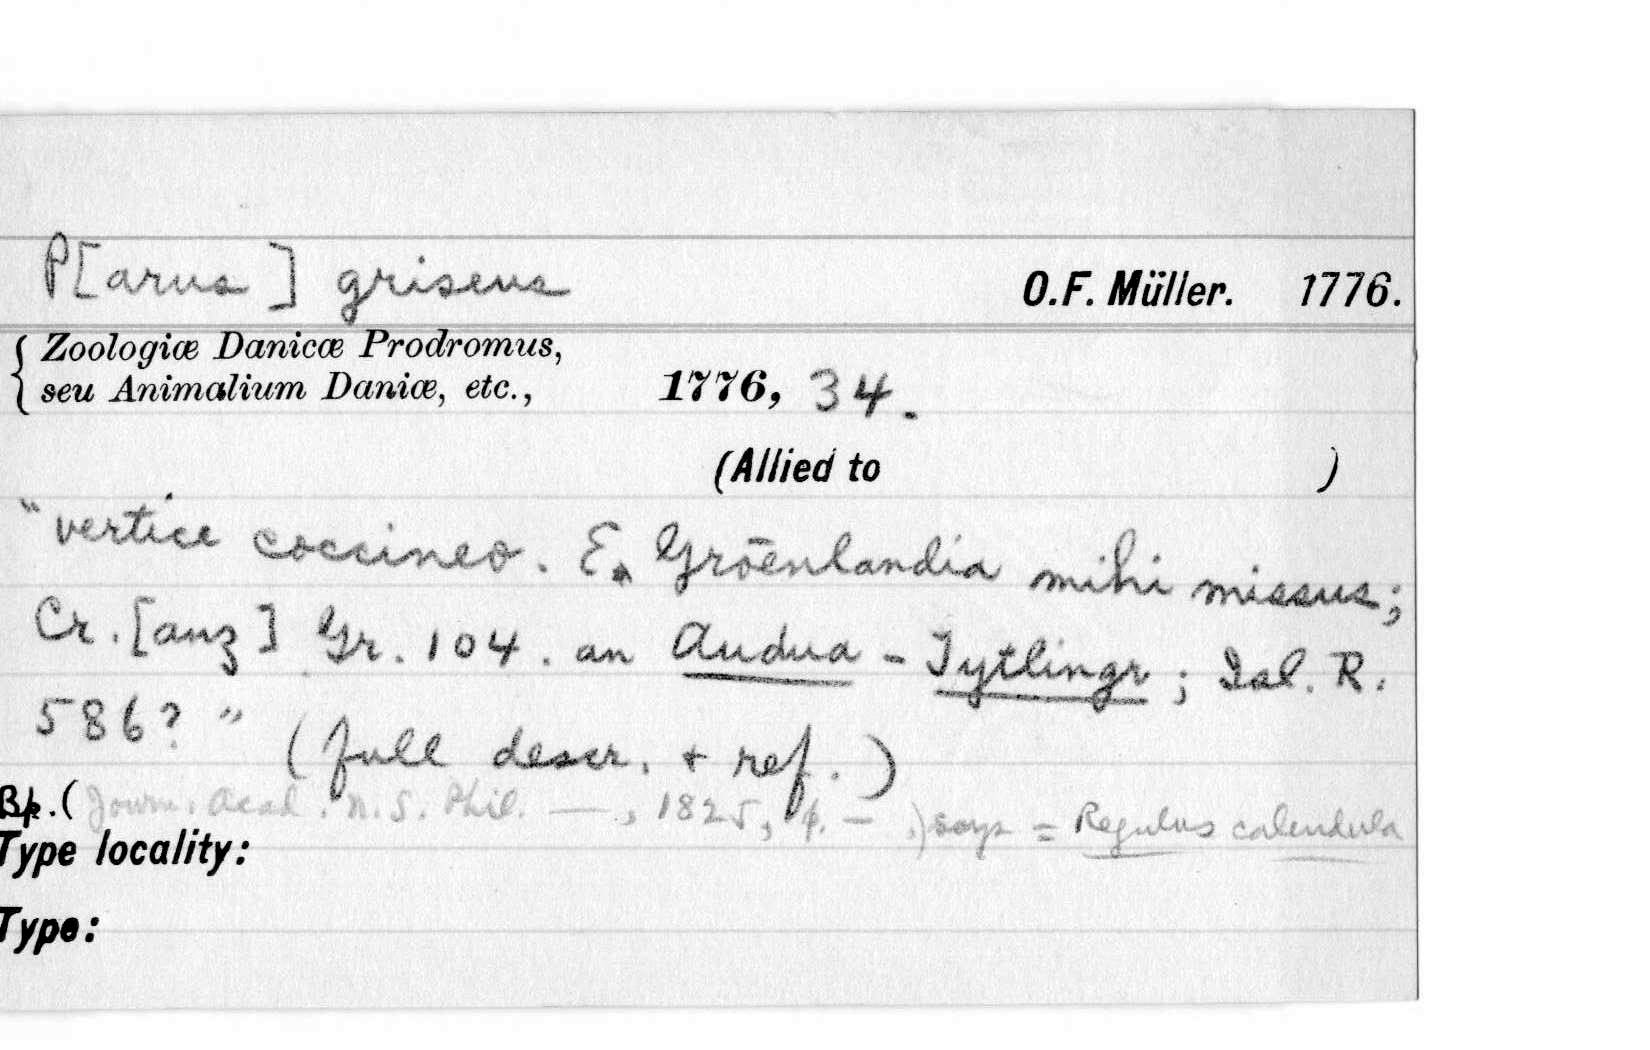 P[arus] griseus O.F. Müller. 1776.
{ Zoologiæ Danicæ Prodromus,
seu Animalium Daniæ, etc., 1776, 34.
(Allied to )
"vertice coccineo. E. Gröenlandia mihi missus;
Cr.[anz] Gr. 104. an Audua - Tytlingr; Isl. R.
586?" (full descr. + ref.)
Bp. (Journ. Acad. N.S. Phil. —, 1825, p. — .) says = Regulus calendula
Type locality:
Type: